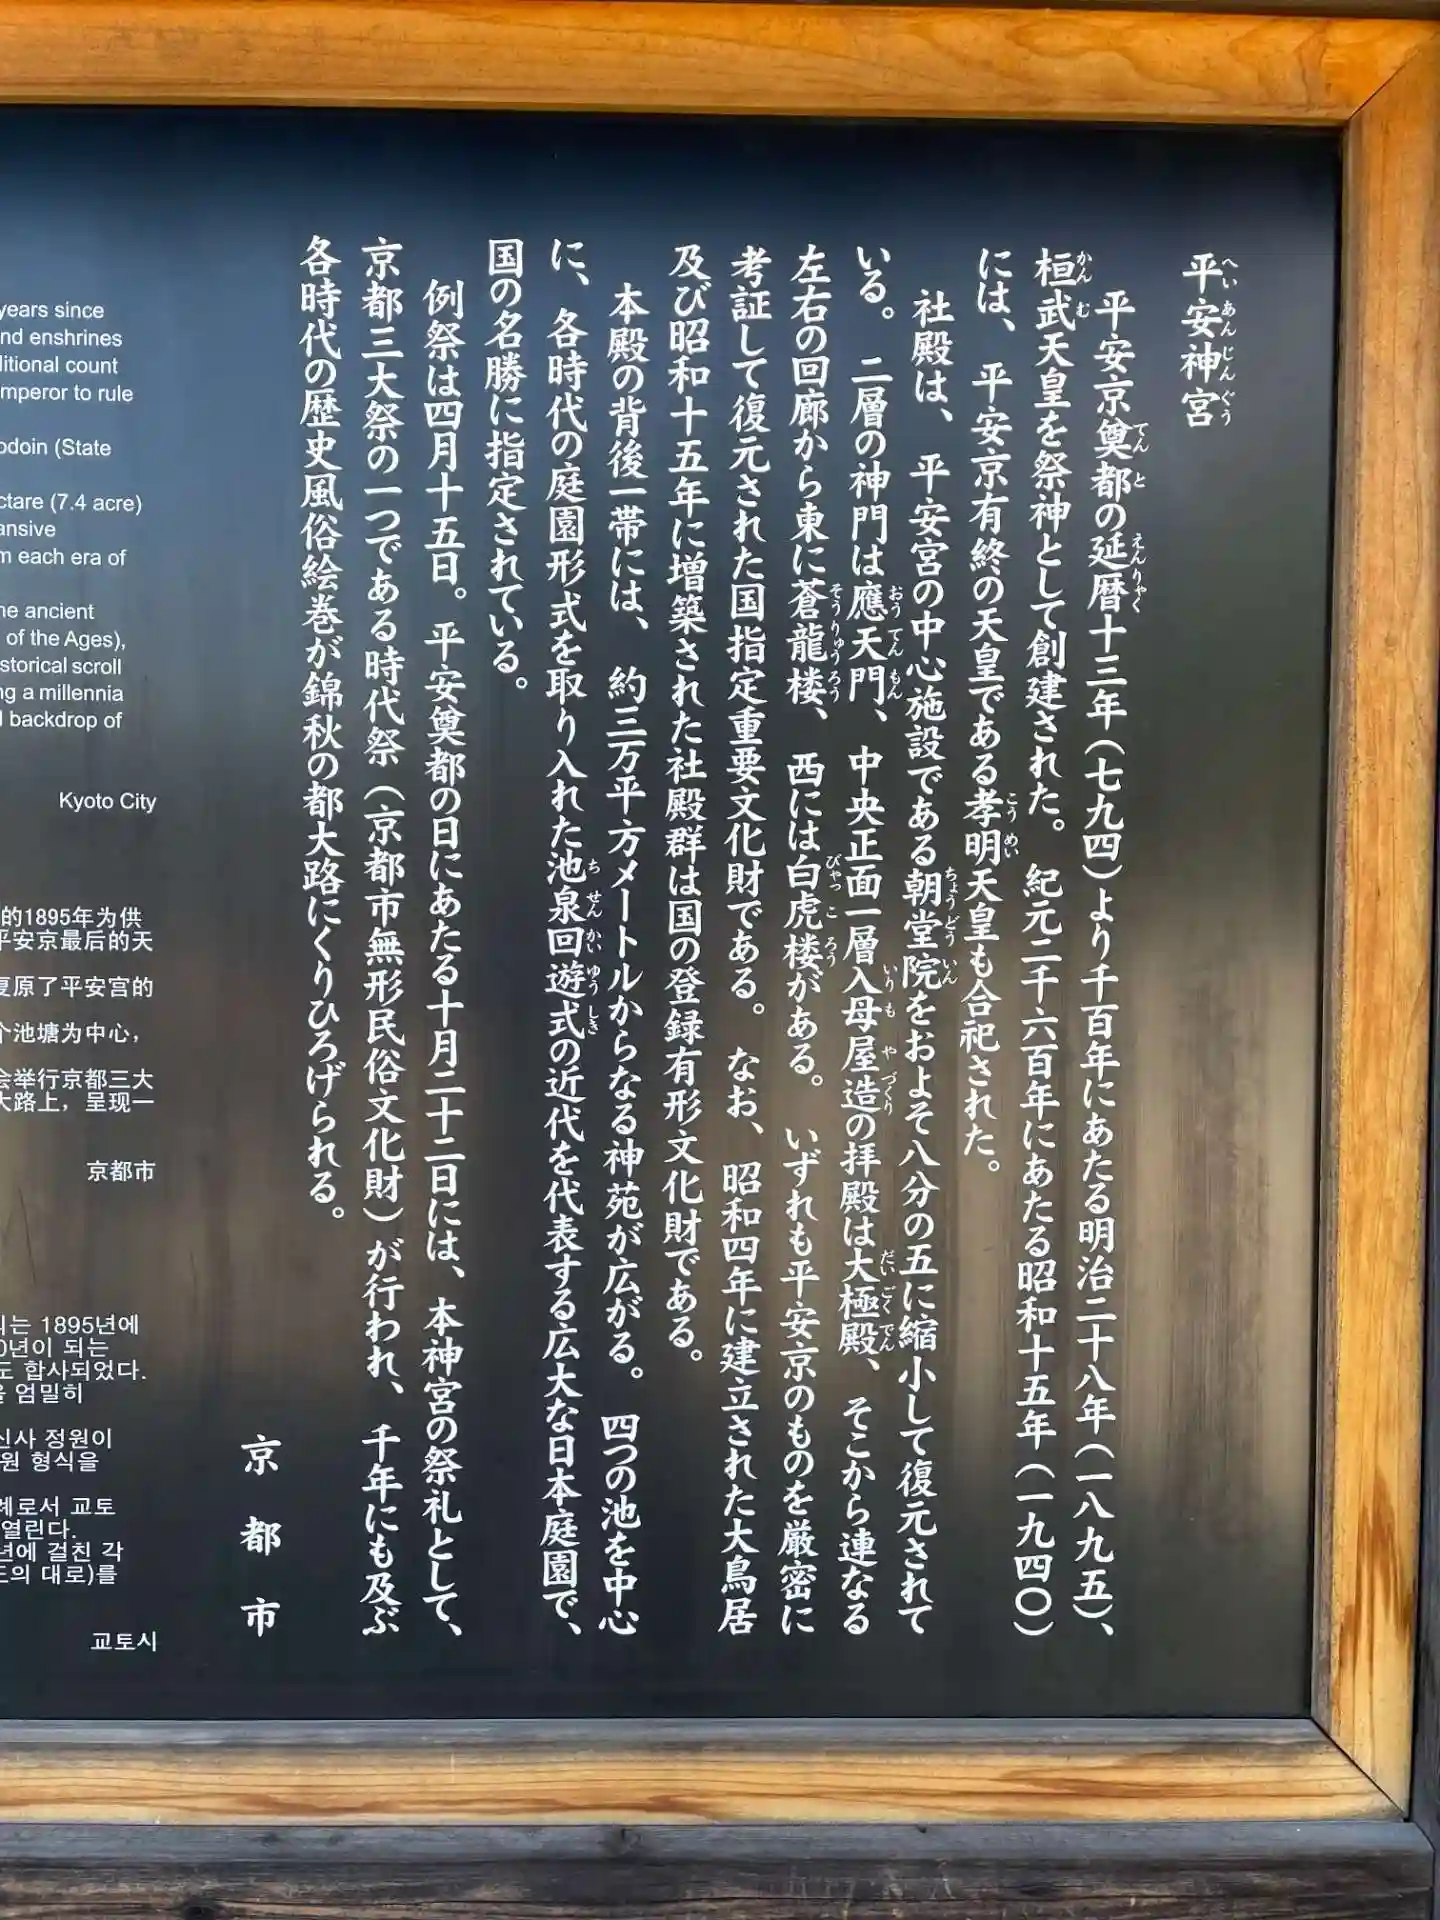 平安神宮
へいあんじんぐう
平安京奠都の延暦十三年（七九四）より千百年にあたる明治二十八年（一八九五）、
てんと えんりゃく
桓武天皇を祭神として創建された。紀元二千六百年にあたる昭和十五年（一九四〇）
かんむ
には、平安京有終の天皇である孝明天皇も合祀された。
こうめい
社殿は、平安宮の中心施設である朝堂院をおよそ八分の五に縮小して復元されて
ちょうどういん
いる。二層の神門は應天門、中央正面一層入母屋造の拝殿は大極殿、そこから連なる
おうてんもん いりもやづくり だいごくでん
左右の回廊から東に蒼龍楼、西には白虎楼がある。いずれも平安京のものを厳密に
そうりゅうろう びゃっころう
考証して復元された国指定重要文化財である。なお、昭和四年に建立された大鳥居
及び昭和十五年に増築された社殿群は国の登録有形文化財である。
本殿の背後一帯には、約三万平方メートルからなる神苑が広がる。四つの池を中心
に、各時代の庭園形式を取り入れた池泉回遊式の近代を代表する広大な日本庭園で、
ちせんかいゆうしき
国の名勝に指定されている。
例祭は四月十五日。平安奠都の日にあたる十月二十二日には、本神宮の祭礼として、
京都三大祭の一つである時代祭（京都市無形民俗文化財）が行われ、千年にも及ぶ
各時代の歴史風俗絵巻が錦秋の都大路にくりひろげられる。
京都市
years since
nd enshrines
ditional count
mperor to rule
odoin (State
ctare (7.4 acre)
ansive
m each era of
he ancient
of the Ages),
storical scroll
ng a millennia
d backdrop of
Kyoto City
的1895年为供
平安京最后的天
复原了平安宫的
个池塘为中心，
会举行京都三大
大路上，呈现一
京都市
는 1895년에
0년이 되는
도 합사되었다.
을 엄밀히
신사 정원이
원 형식을
례로서 교토
열린다.
년에 걸친 각
도의 대로)를
교토시